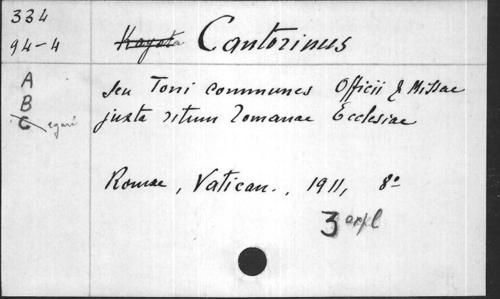 334
94-4
Cantorinus
A
B
C
seu Toni communes Officii & Missae
juxta ritum Romanae Ecclesiae
Romae, Vatican., 1911, 8°
3 expl